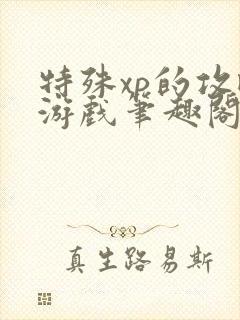 特殊xp的攻
游戏笔趣阁
真生路易斯